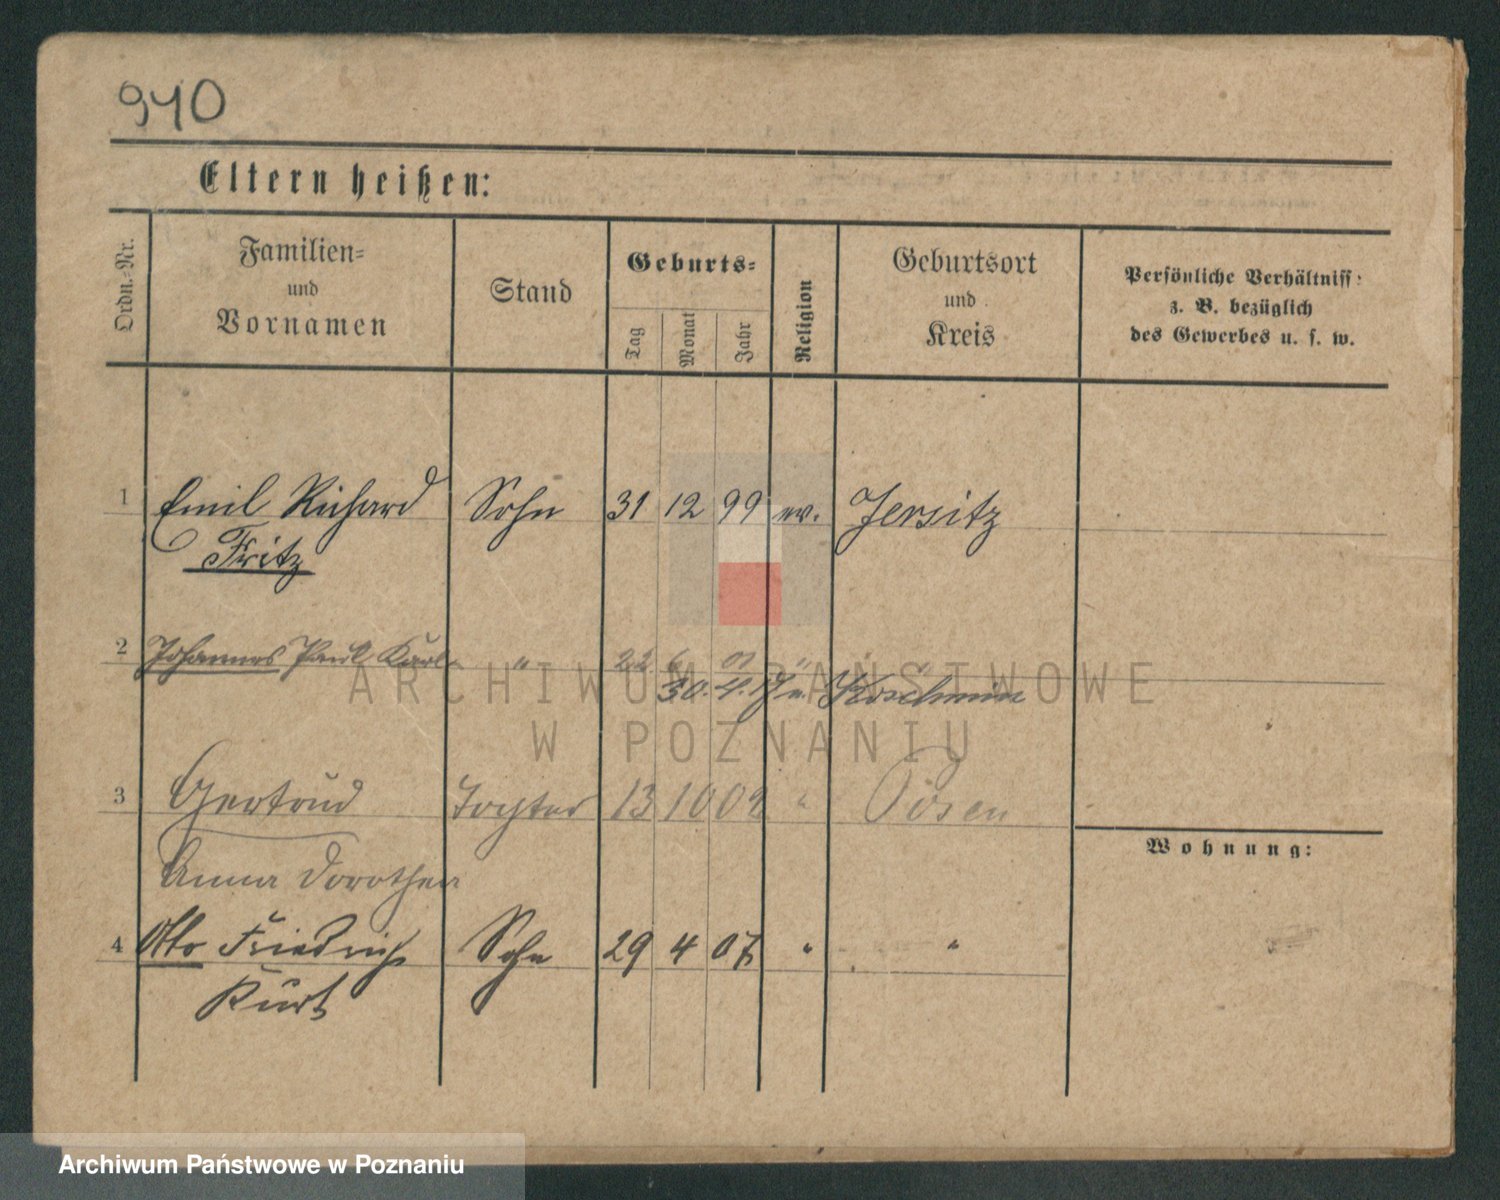 940
Eltern heißen:
Ordn.-Nr.
Familien-
und
Vornamen
Stand
Geburts-
Tag
Monat
Jahr
Religion
Geburtsort
und
Kreis
Persönliche Verhältniss:
z. B. bezüglich
des Gewerbes u. s. w.
1 Emil Richard Sohn 31 12 99 ev. Jersitz
Fritz
2 Johannes Paul Karl " 22 6 01 " "
30. 4. 17 n. Koschmin
ARCHIWUM PAŃSTWOWE
W POZNANIU
3 Gertrud Tochter 13 10 02 " Posen
Wohnung:
Anna Dorothea
4 Otto Friedrich Sohn 29 4 07 " "
Kurt
Archiwum Państwowe w Poznaniu